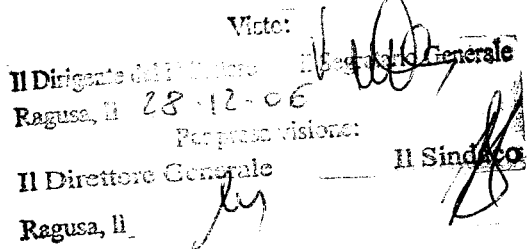 Visto:
Il Dirigente del Settore Il Segretario Generale
Ragusa, lì 28-12-06
Per presa visione:
Il Direttore Generale Il Sindaco
Ragusa, lì